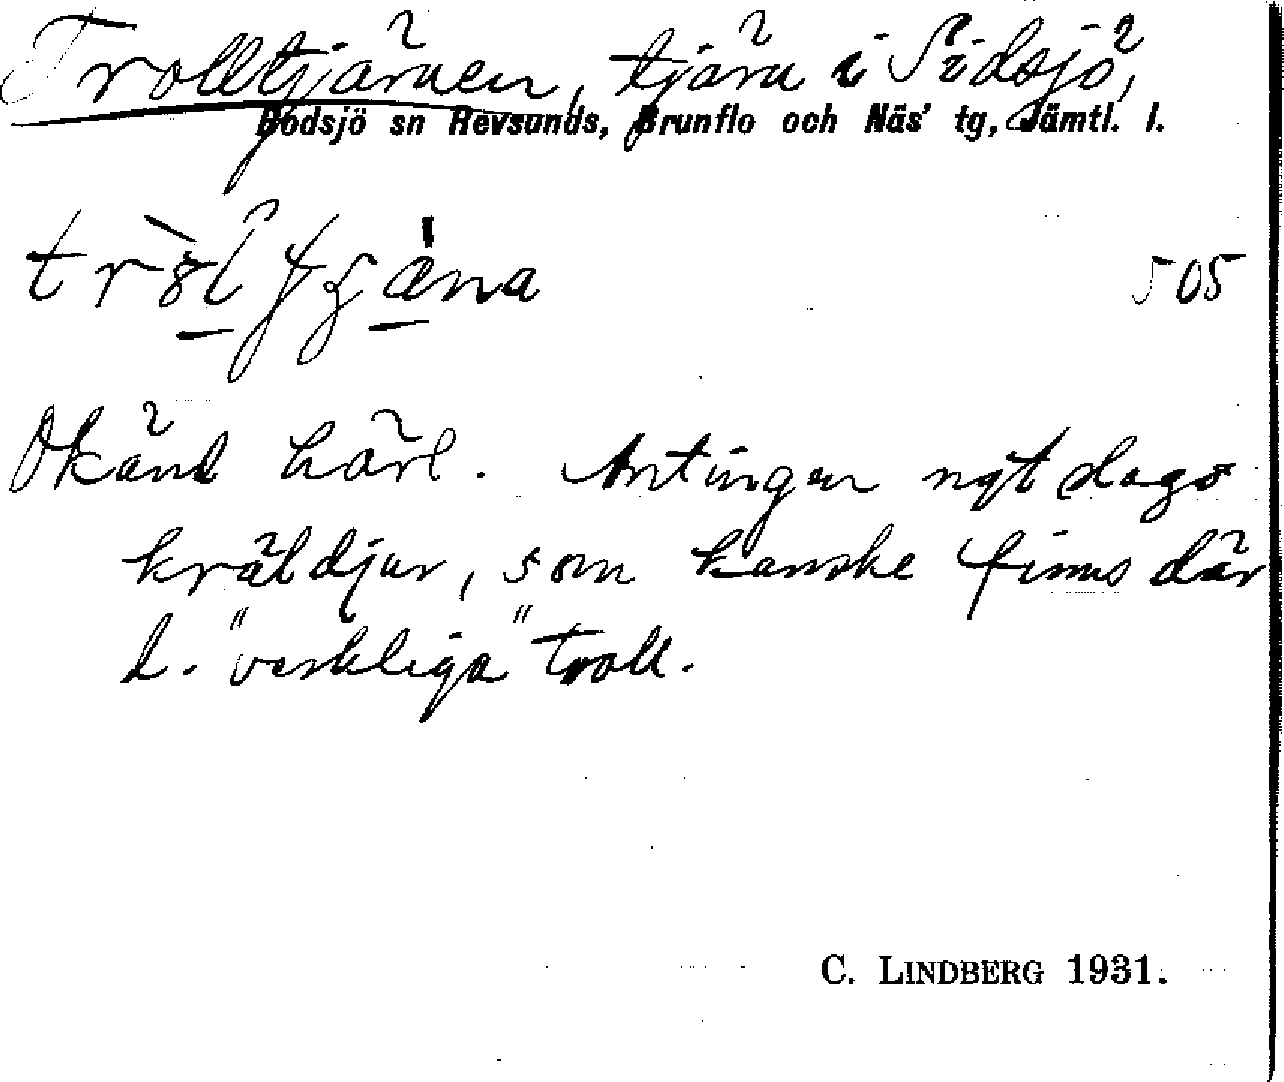 Trolltjärnen, tjärn i Sidsjö,
Bodsjö sn Revsunds, Brunflo och Näs' tg, Jämtl. l.
505
Okänd härl. Antingen ngt slags
kräldjur, som kanske finns där
l. "verkliga" troll.
C. LINDBERG 1931.